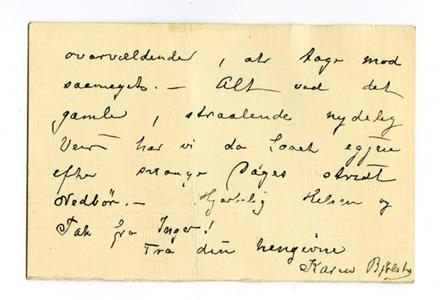 overvældende, at tage mod
saameget. — Alt ved det
gamle, straalende nydelig
Veir har vi da
efter mange Dages
Nedbør. — Hjertelig Hilsen og
Tak fra Inger!
Fra din hengivne
Karen